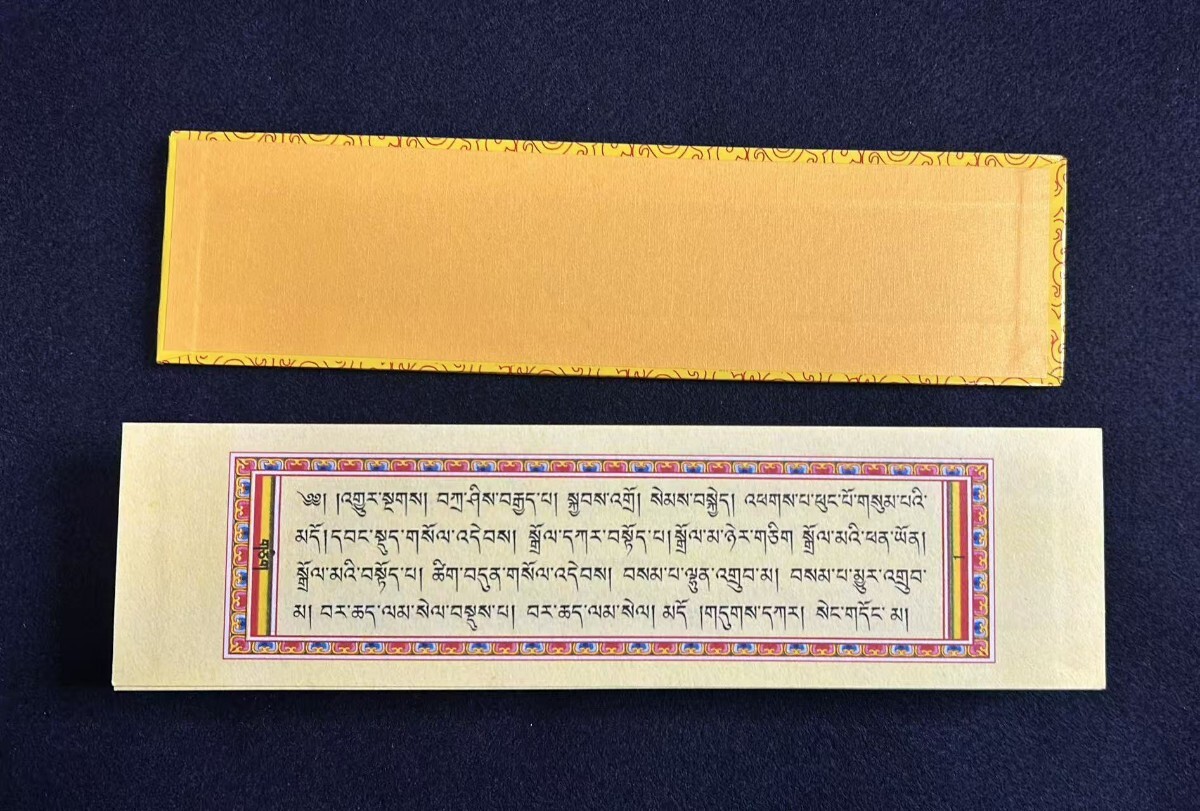 ༄༅། །འགྱུར་སྔགས། བཀྲ་ཤིས་བརྒྱད་པ། སྐྱབས་འགྲོ། སེམས་བསྐྱེད། འཕགས་པ་ཕུང་པོ་གསུམ་པའི་
མདོ། དབང་སྡུད་གསོལ་འདེབས། སྒྲོལ་དཀར་བསྟོད་པ། སྒྲོལ་མ་ཉེར་གཅིག སྒྲོལ་མའི་ཕན་ཡོན།
སྒྲོལ་མའི་བསྟོད་པ། ཚིག་བདུན་གསོལ་འདེབས། བསམ་པ་ལྷུན་འགྲུབ་མ། བསམ་པ་མྱུར་འགྲུབ་
མ། བར་ཆད་ལམ་སེལ་བསྡུས་པ། བར་ཆད་ལམ་སེལ། མདོ །གདུགས་དཀར། སེང་གདོང་མ།
གཅིག